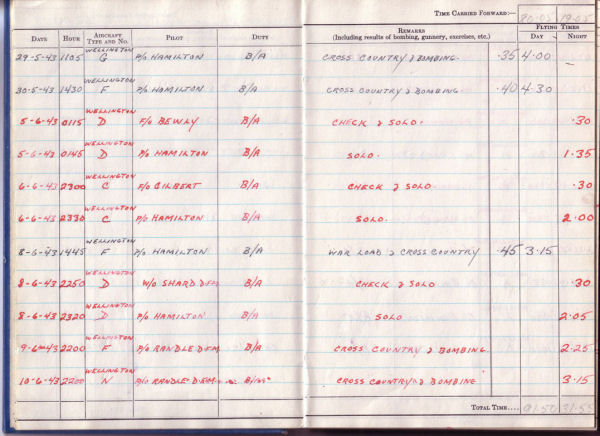 TIME CARRIED FORWARD:— 80.05 19.05
DATE HOUR AIRCRAFT TYPE AND NO. PILOT DUTY REMARKS (Including results of bombing, gunnery, exercises, etc.) FLYING TIMES DAY NIGHT
29-5-43 1105 WELLINGTON G P/O HAMILTON B/A CROSS COUNTRY & BOMBING. .35 4.00 —
30-5-43 1430 WELLINGTON F P/O HAMILTON B/A CROSS COUNTRY & BOMBING. .40 4.30
5-6-43 0115 WELLINGTON D F/O BEWLY B/A CHECK & SOLO. .30
5-6-43 0145 WELLINGTON D P/O HAMILTON B/A SOLO. 1.35
6-6-43 2300 WELLINGTON C F/O GILBERT B/A CHECK & SOLO. .30
6-6-43 2330 WELLINGTON C P/O HAMILTON B/A SOLO. 2.00
8-6-43 1445 WELLINGTON F P/O HAMILTON B/A WAR LOAD & CROSS COUNTRY .45 3.15
8-6-43 2250 WELLINGTON D W/O SHARD B/A CHECK & SOLO .30
8-6-43 2320 WELLINGTON D P/O HAMILTON B/A SOLO 2.05
9-6-43 2200 WELLINGTON F P/O RANDLE D.F.M. B/A CROSS COUNTRY & BOMBING. 2.25
10-6-43 2200 WELLINGTON N P/O RANDLE D.F.M. CROSS COUNTRY & BOMBING 3.15
TOTAL TIME.... 91.50 31.55